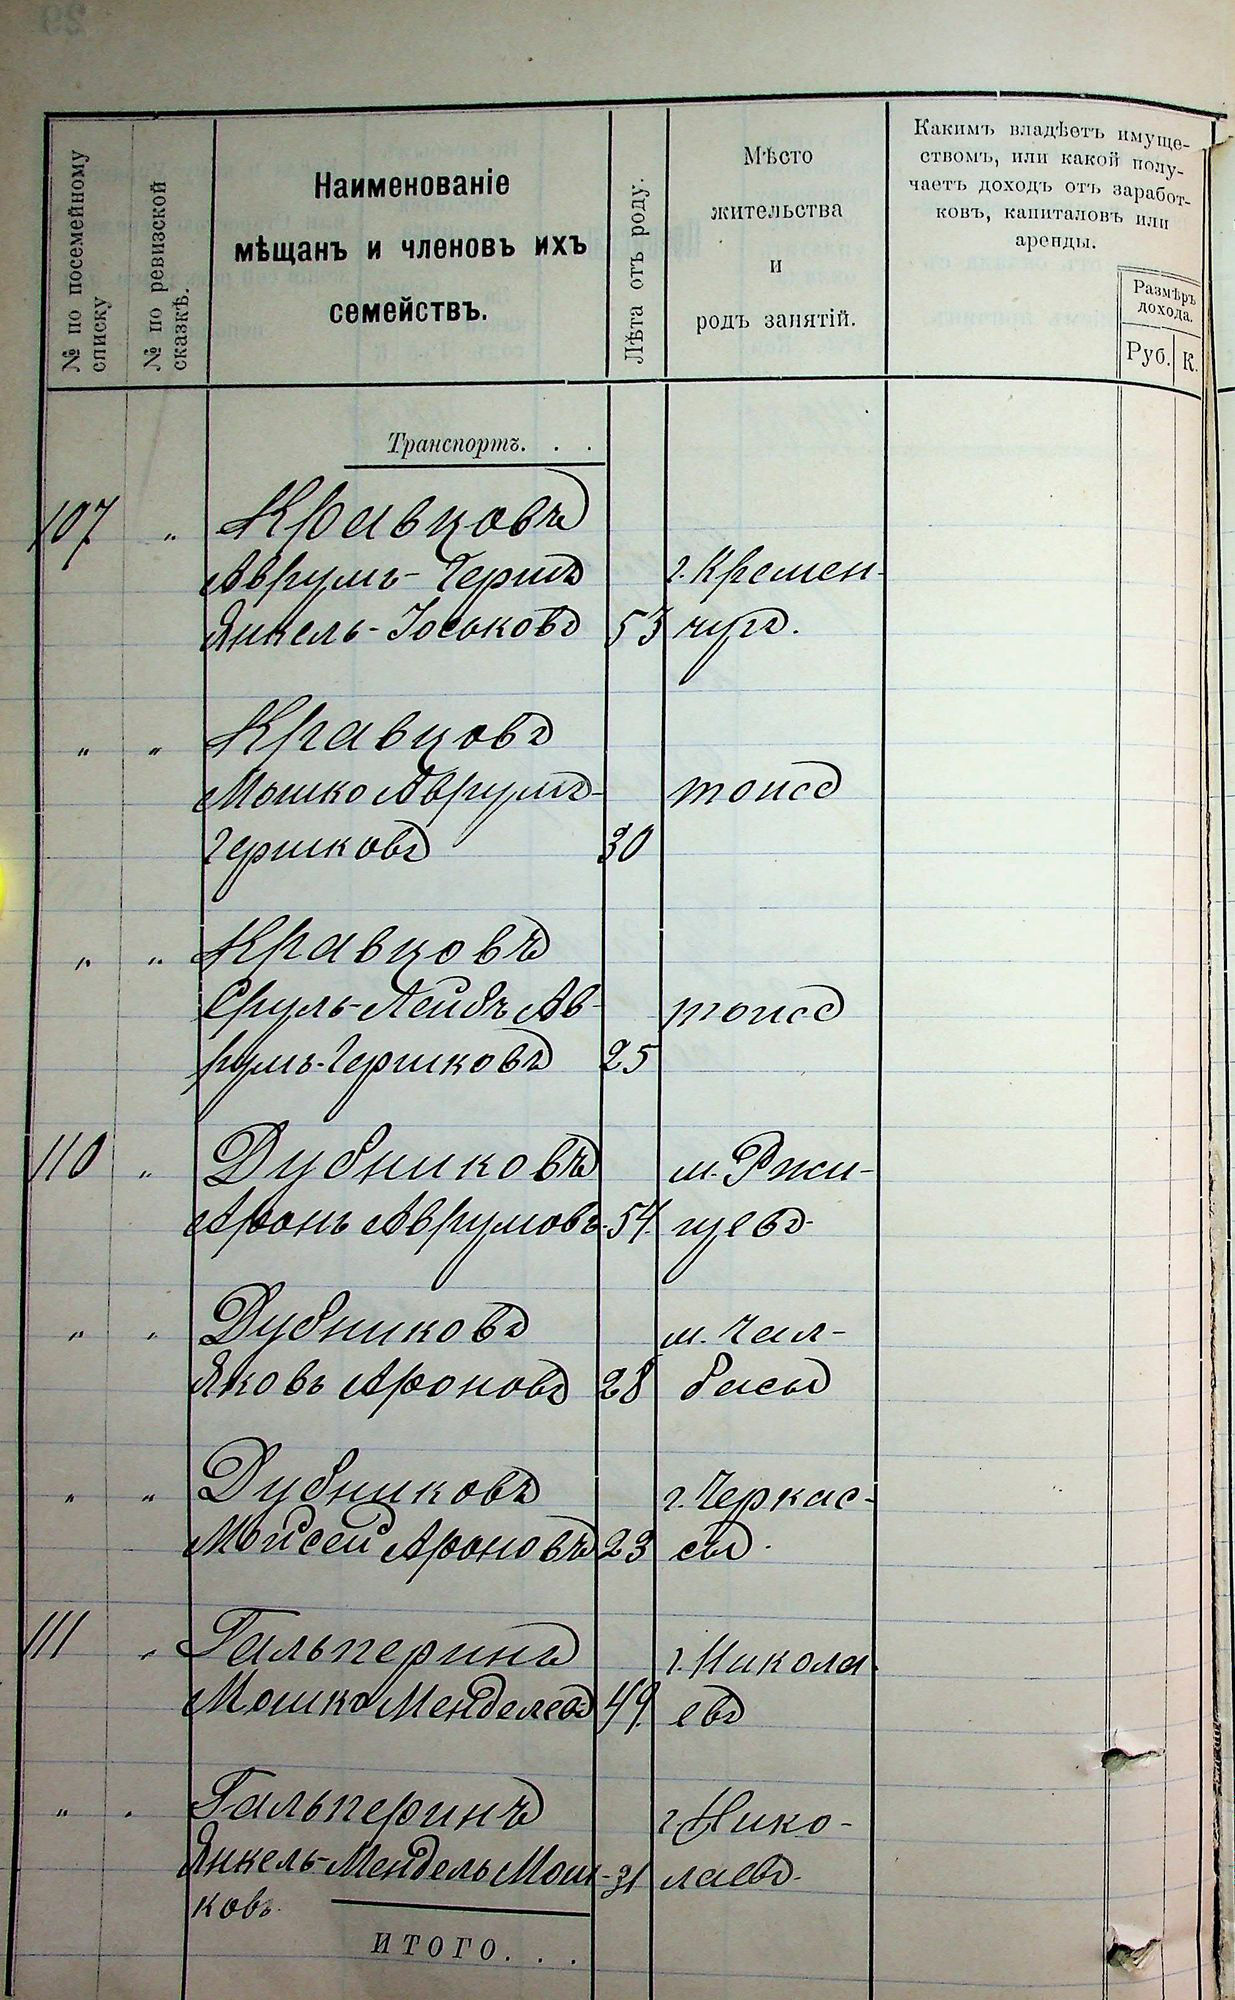 № по посемейному списку
№ по ревизской сказкѣ.
Наименованіе
мѣщанъ и членовъ ихъ
семействъ.
Лѣта отъ роду.
Мѣсто
жительства
и
родъ занятій.
Какимъ владѣетъ имуще-
ствомъ, или какой полу-
чаетъ доходъ отъ заработ-
ковъ, капиталовъ или
аренды.
Размѣръ
дохода.
Руб. К.
Транспортъ. . .
107 " Кравцовъ
Аврумъ-Гершъ г. Кремен-
Янкель-Іоськовъ 53 чугъ.
" " Кравцовъ
Мошко Аврумъ- тоисъ
Гершковъ 30
" " Кравцовъ
Сруль-Лейбъ Ав- тоисъ
румъ-Гершковъ 25
110 " Дубниковъ м. Ржи-
Аронъ Аврумовъ. 54. щевъ.
" " Дубниковъ м. Чал-
Яковъ Ароновъ 28 басы
" " Дубниковъ г. Черкас-
Мойсей Ароновъ 23 сы.
111 " Гальперинъ г. Никола-
Мошко Менделевъ 49. евъ
" " Гальперинъ г. Нико-
Янкель-Мендель Мош- 31 лаевъ.
ковъ.
ИТОГО. . .